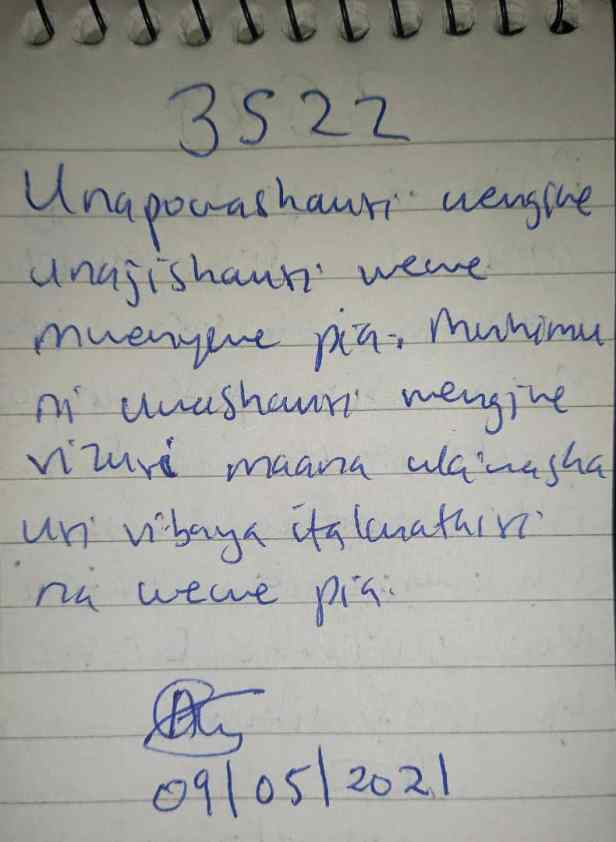 3522
Unapowashauri wengine
unajishauri wewe
mwenyewe pia. Muhimu
ni uwashauri wengine
vizuri maana ukiwasha
uri vibaya itakuathiri
na wewe pia.
09/05/2021